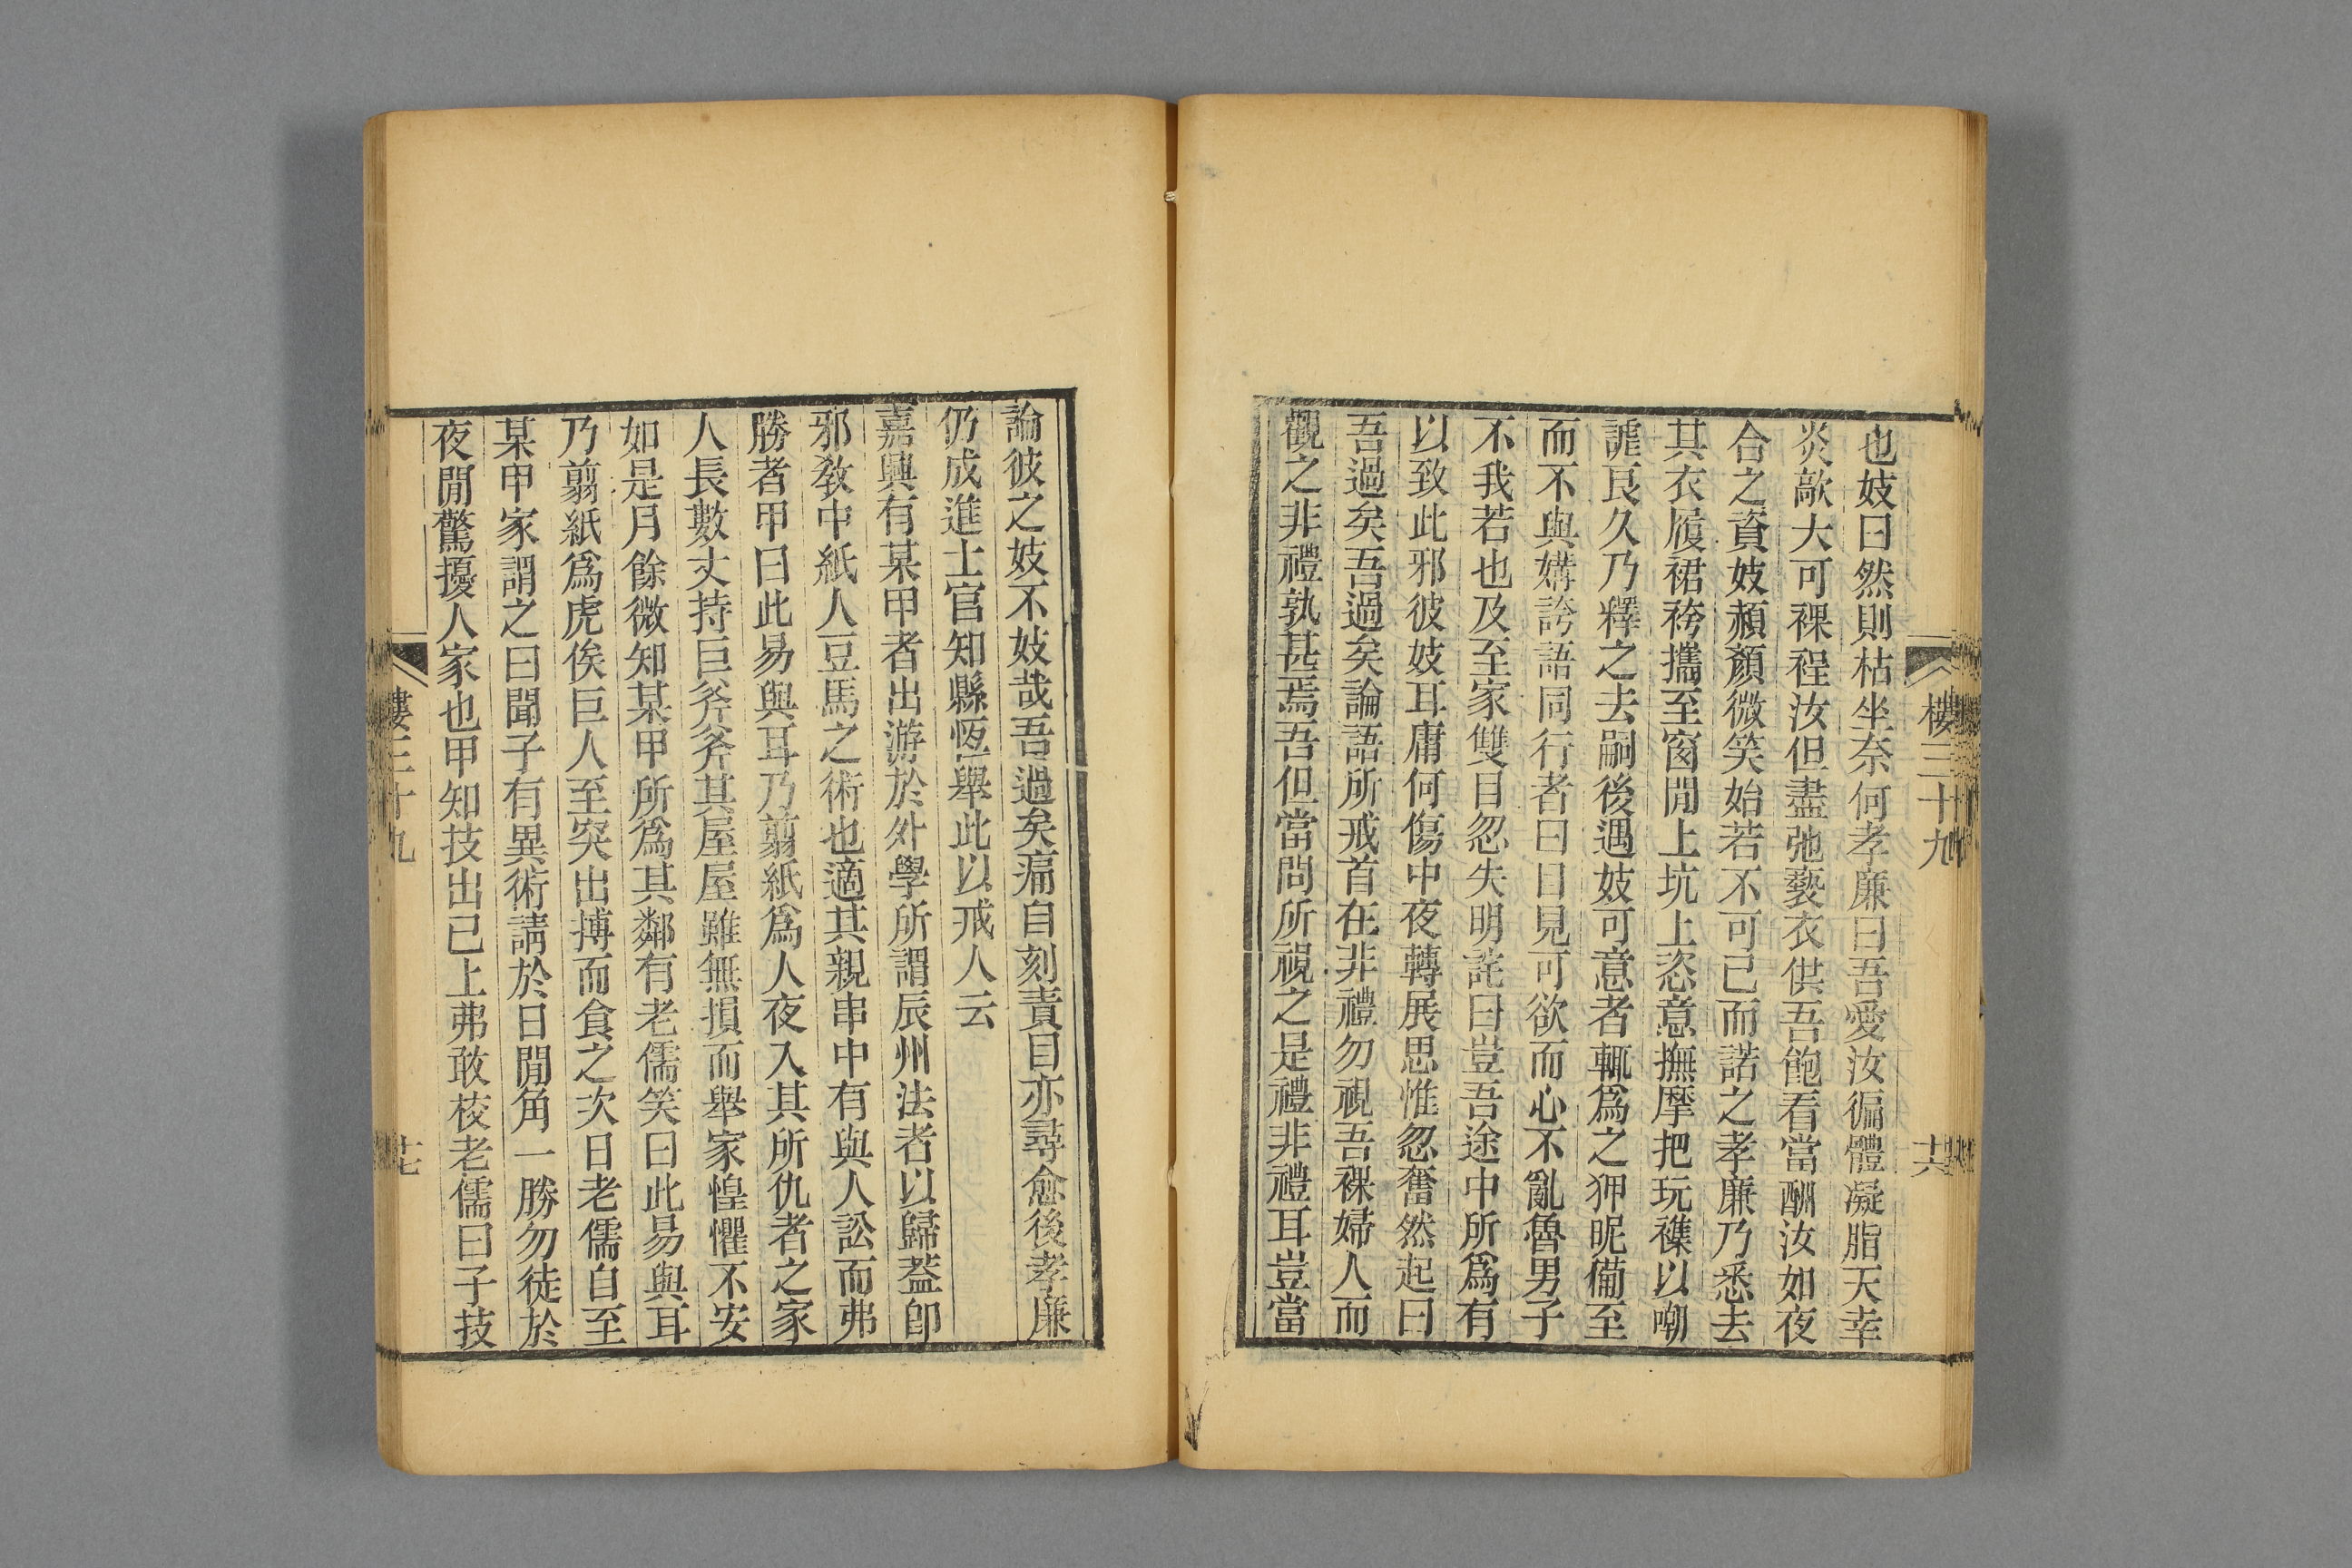 樓三十九
十六
也妓曰然則枯坐奈何孝廉曰吾愛汝徧體凝脂天幸
炎歊大可裸裎汝但盡弛褻衣供吾飽看當酬汝如夜
合之資妓頳顏微笑始若不可已而諾之孝廉乃悉去
其衣履裙袴攜至窗閒上坑上恣意撫摩把玩襍以嘲
謔良久乃釋之去嗣後遇妓可意者輒爲之狎昵備至
而不與媾誇語同行者曰目見可欲而心不亂魯男子
不我若也及至家雙目忽失明詫曰豈吾途中所爲有
以致此邪彼妓耳庸何傷中夜轉展思惟忽奮然起曰
吾過矣吾過矣論語所戒首在非禮勿視吾裸婦人而
觀之非禮孰甚焉吾但當問所視之是禮非禮耳豈當
論彼之妓不妓哉吾過矣痛自刻責目亦尋愈後孝廉
仍成進士官知縣恆舉此以戒人云
嘉興有某甲者出游於外學所謂辰州法者以歸葢卽
邪敎中紙人豆馬之術也適其親串中有與人訟而弗
勝者甲曰此易與耳乃翦紙爲人夜入其所仇者之家
人長數丈持巨斧斧其屋屋雖無損而舉家惶懼不安
如是月餘微知某甲所爲其鄰有老儒笑曰此易與耳
乃翦紙爲虎俟巨人至突出搏而食之次日老儒自至
某甲家謂之曰聞子有異術請於日閒角一勝勿徒於
夜閒驚擾人家也甲知技出己上弗敢校老儒曰子技
樓三十九
十七